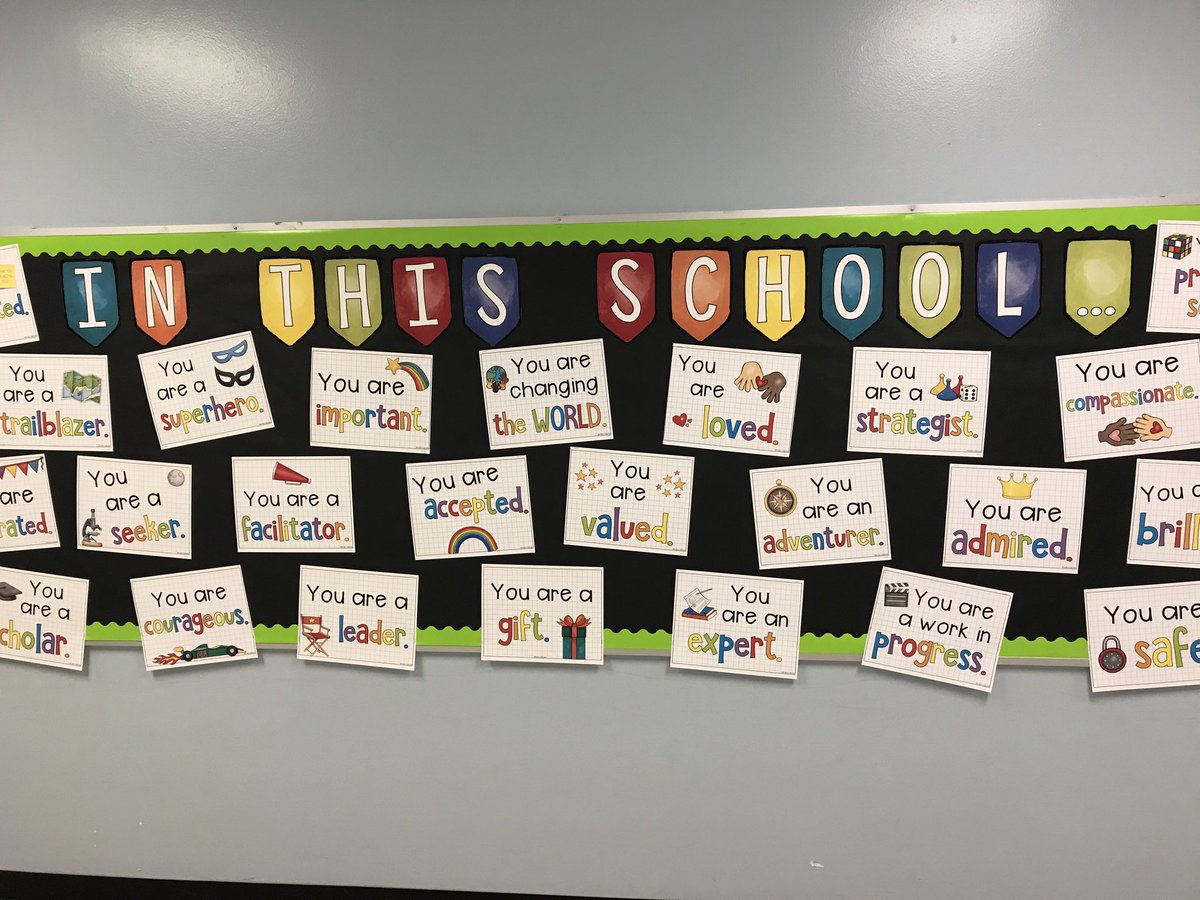 IN THIS SCHOOL...
ted.
You
are a
trailblazer.
You
are a
superhero.
You are
important.
You are
changing
the WORLD.
You
are
loved.
You
are a
strategist.
You are
compassionate.
are
rated.
You
are a
seeker.
You are a
facilitator.
You are
accepted.
You
are
valued.
You
are an
adventurer.
You are
admired.
You a
brill
You
are a
cholar.
You are
courageous.
You are a
leader.
You are a
gift.
You
are an
expert.
You are
a work in
progress.
You are
safe